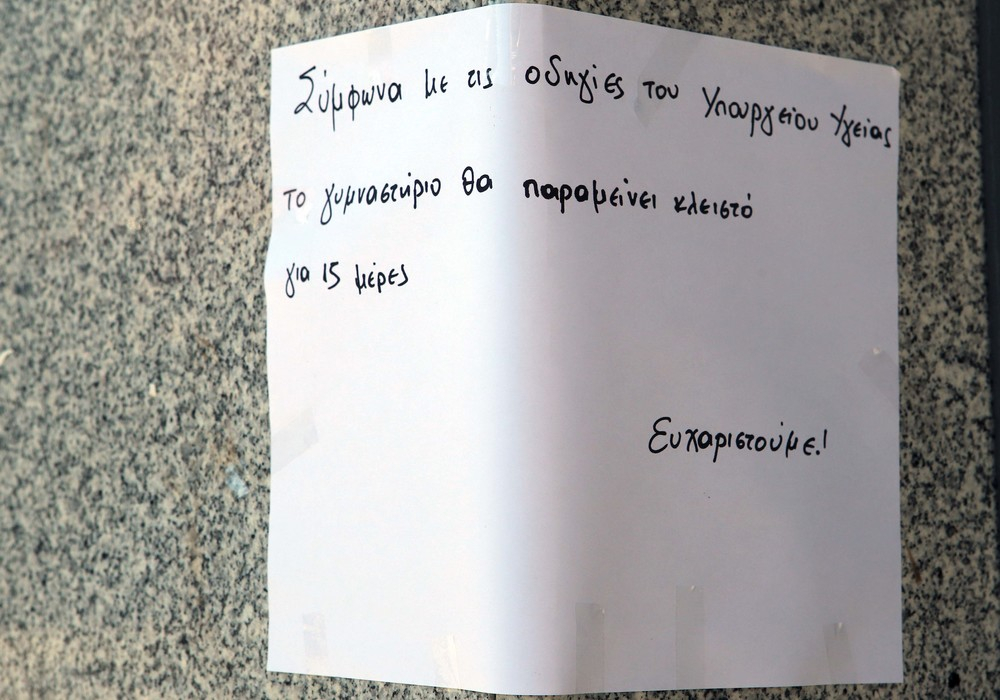 Σύμφωνα με τις οδηγίες του Υπουργείου Υγείας
το γυμναστήριο θα παραμείνει κλειστό
για 15 μέρες
Ευχαριστούμε!